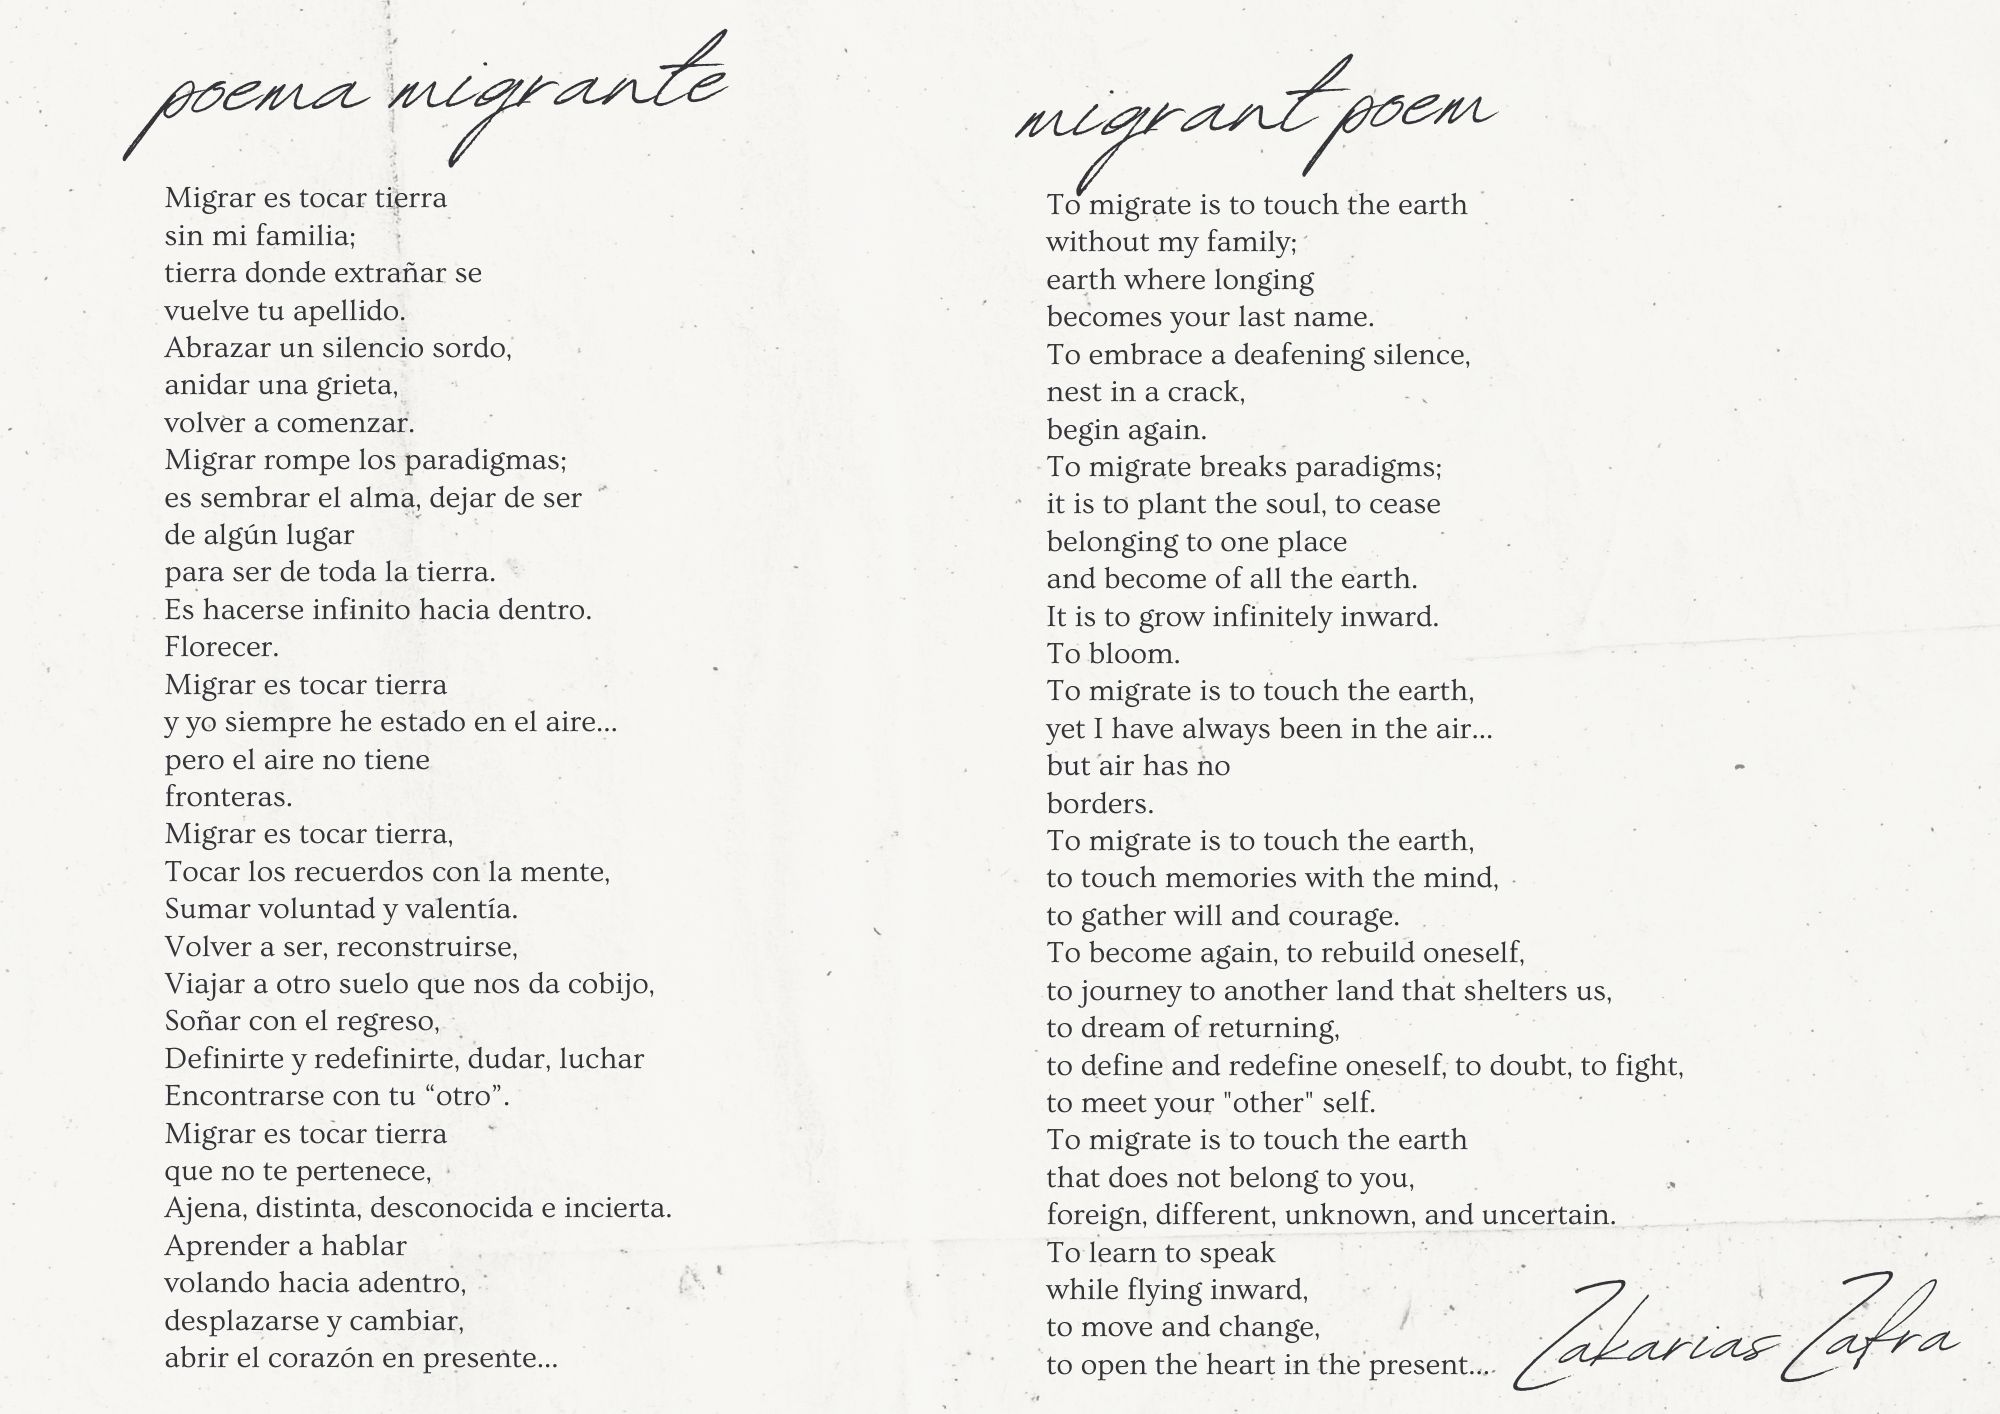 poema migrante
Migrar es tocar tierra
sin mi familia;
tierra donde extrañar se
vuelve tu apellido.
Abrazar un silencio sordo,
anidar una grieta,
volver a comenzar.
Migrar rompe los paradigmas;
es sembrar el alma, dejar de ser
de algún lugar
para ser de toda la tierra.
Es hacerse infinito hacia dentro.
Florecer.
Migrar es tocar tierra
y yo siempre he estado en el aire...
pero el aire no tiene
fronteras.
Migrar es tocar tierra,
Tocar los recuerdos con la mente,
Sumar voluntad y valentía.
Volver a ser, reconstruirse,
Viajar a otro suelo que nos da cobijo,
Soñar con el regreso,
Definirte y redefinirte, dudar, luchar
Encontrarse con tu “otro”.
Migrar es tocar tierra
que no te pertenece,
Ajena, distinta, desconocida e incierta.
Aprender a hablar
volando hacia adentro,
desplazarse y cambiar,
abrir el corazón en presente...
migrant poem
To migrate is to touch the earth
without my family;
earth where longing
becomes your last name.
To embrace a deafening silence,
nest in a crack,
begin again.
To migrate breaks paradigms;
it is to plant the soul, to cease
belonging to one place
and become of all the earth.
It is to grow infinitely inward.
To bloom.
To migrate is to touch the earth,
yet I have always been in the air...
but air has no
borders.
To migrate is to touch the earth,
to touch memories with the mind,
to gather will and courage.
To become again, to rebuild oneself,
to journey to another land that shelters us,
to dream of returning,
to define and redefine oneself, to doubt, to fight,
to meet your "other" self.
To migrate is to touch the earth
that does not belong to you,
foreign, different, unknown, and uncertain.
To learn to speak
while flying inward,
to move and change,
to open the heart in the present...
Zakarias Zafra